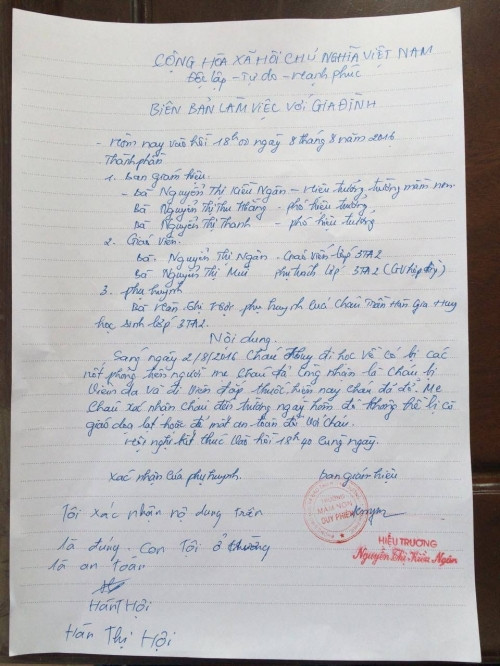 CỘNG HÒA XÃ HỘI CHỦ NGHĨA VIỆT NAM
Độc lập - Tự do - Hạnh phúc
BIÊN BẢN LÀM VIỆC VỚI GIA ĐÌNH
- Hôm nay vào hồi 18h00 ngày 8 tháng 8 năm 2016
Thành phần
1. Ban giám hiệu.
- Bà Nguyễn Thị Kiều Ngân - Hiệu trưởng trường mầm non
Bà Nguyễn Thị Thu Hằng - phó hiệu trưởng
Bà Nguyễn Thị Thanh - phó hiệu trưởng
2. Giáo viên.
Bà Nguyễn Thị Ngân - Giáo viên lớp 3TA2
Bà Nguyễn Thị Mùi phụ trách lớp 3TA2 (GV hợp đồng)
3. phụ huynh
Bà Hán Thị phụ huynh cháu Trần Hán Gia Huy
học sinh lớp 3TA2.
Nội dung.
Sáng ngày 2/8/2016 Cháu Huy đi học về có bị các
nốt phỏng trên người mẹ cháu đã công nhận là cháu bị
viêm da và đi viện đắp thuốc hiện nay cháu đã đỡ. Mẹ
cháu xác nhận cháu đến trường ngày hôm đó không thể bị cô
giáo dọa lạt hoặc để mất an toàn đối với cháu.
Hội nghị kết thúc vào hồi 18h40 cùng ngày.
Xác nhận của phụ huynh. ban giám hiệu
Tôi xác nhận nộ dung trên
là đúng. Con tôi ở trường
là an toàn
TRƯỜNG
MẦM NON
DUY PHIÊN
HIỆU TRƯỞNG
Nguyễn Thị Kiều Ngân
Hán T Hội
Hán Thị Hội